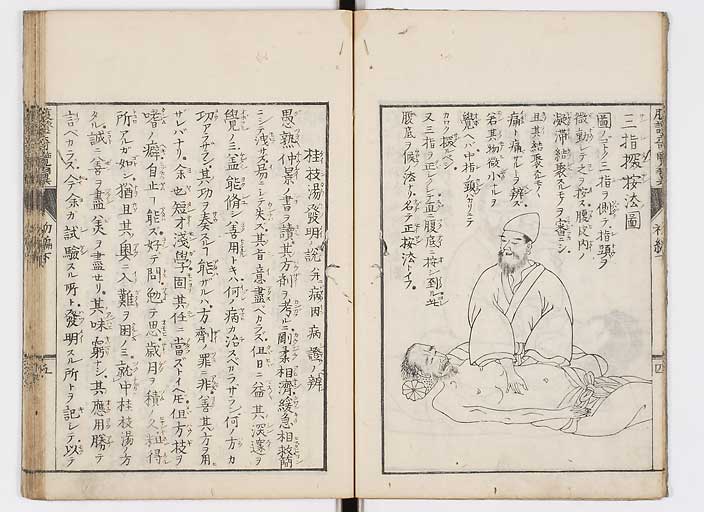 三指探按法圖
圖ノゴトク三指ヲ側テ指頭ヲ
微動シテ之ヲ按ス腹皮内ノ
凝滯結聚スルモノヲ審ニシ
且其結聚スルモノ
痛ト痛サルトヲ辨ス
若其物微小ナルヲ
覺ヘバ中指ノ頭バカリニテ
カロク探ベシ
又三指ヲ正シクシテ正ニ腹底ニ按シ到ル
腹底ヲ候フ法ナリ名テ正按法トイフ
桂枝湯發明ノ説并病因病證ノ辨
愚熟仲景ノ書ヲ讀其方劑ヲ考ルニ剛柔相濟緩急相救簡
ニシテ洩サズ易ニシテ失ズ其旨意盡ベカラズ但日ニ益其深邃ヲ
覺ノミ蓋能脩シ善用トキハ何ノ病カ治スベカラザラン何ノ方カ
功アラザラン其功ヲ奏スルフ能ザルハ方劑ノ罪ニ非善其方ヲ用
ザレバナリ余也短才淺學固其任ニ當ズトイヘ𪜈但方技ヲ
嗜ノ癖自止フ能ズ好テ問勉テ思歳月ヲ積ノ久粗得
所アルガ如シ猶且其奥ニ入難ヲ困ノミ就中桂枝湯ノ方
タル誠ニ善ヲ盡美ヲ盡セリ其味窮ナシ其應用勝テ
言ベカラズ今余ガ試驗スル所ト發明スル所トヲ記シテ以テ